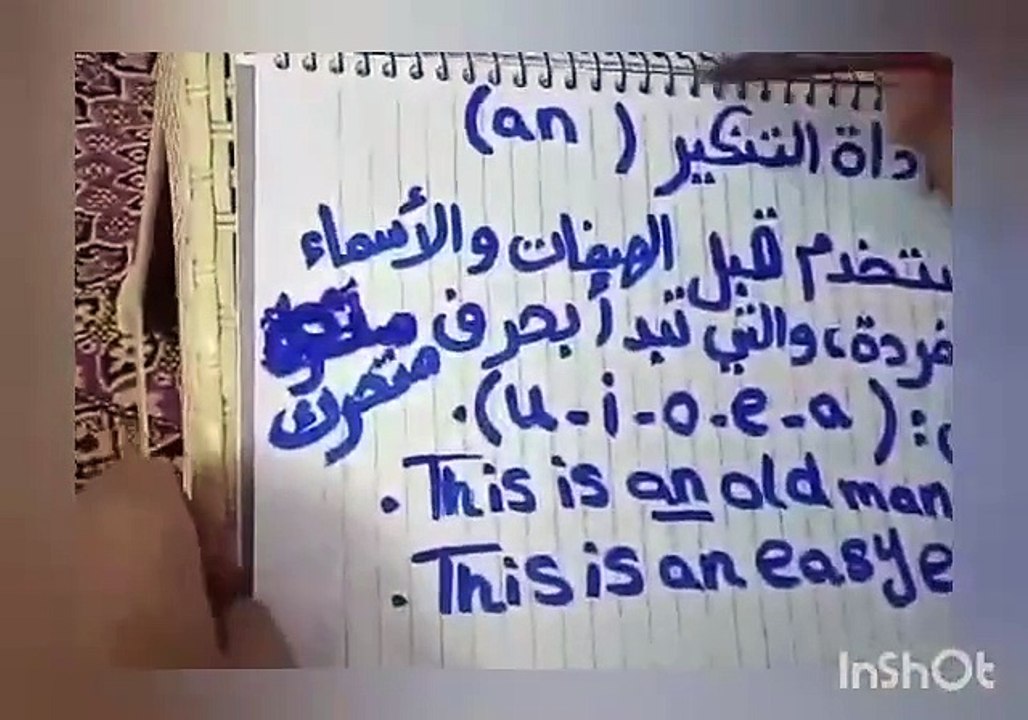 داة التنكير (an)
ستخدم قبل الصفات والأسماء
فردة، والتي تبدأ بحرف
متحرك
: (u-i-o-e-a).
. This is an old man
. This is an easy e
InShOt